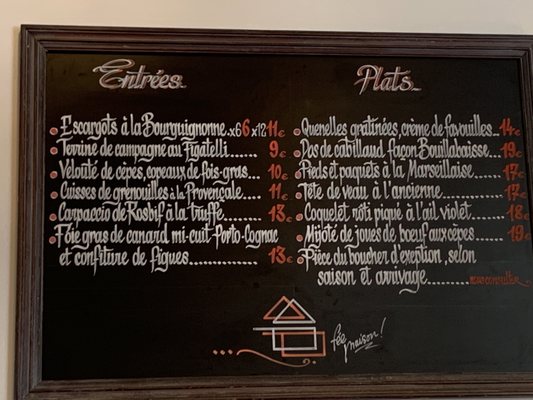 Entrées
Escargots à la Bourguignonne x6 6 x12 11€
Terrine de campagne au Figatelli...... 9€
Velouté de cèpes, copeaux de fois-gras... 10€
Cuisses de grenouilles à la Provençale.... 11€
Carpaccio de Rosbif à la truffe........ 13€
Foie gras de canard mi-cuit Porto-Cognac
et confiture de figues.............. 13€
Plats
Quenelles gratinées, crème de favouilles.. 14€
Dos de cabillaud façon Bouillabaisse... 19€
Pieds et paquets à la Marseillaise..... 17€
Tête de veau à l'ancienne.......... 17€
Coquelet rôti piqué à l'ail violet...... 18€
Mijoté de joues de bœuf aux cèpes..... 19€
Pièce du boucher d'exeption, selon
saison et arrivage........ nous consulter
fée maison!